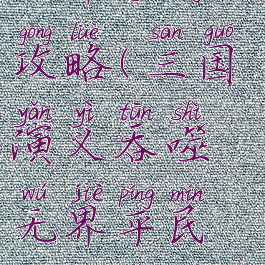 gōng lüè sān guó
攻略(三国
yǎn yì tūn shì
演义吞噬
wú jiè píng mín
无界平民